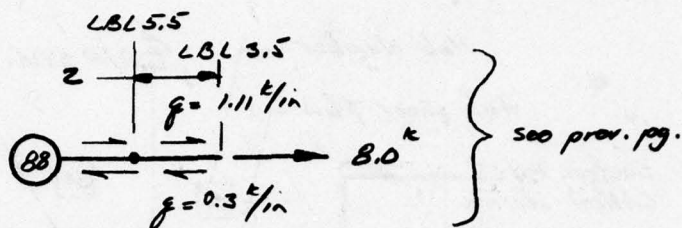 LBL 5.5
LBL 3.5
2
q = 1.11 k/in
88
8.0 k
q = 0.3 k/in
see prev. pg.